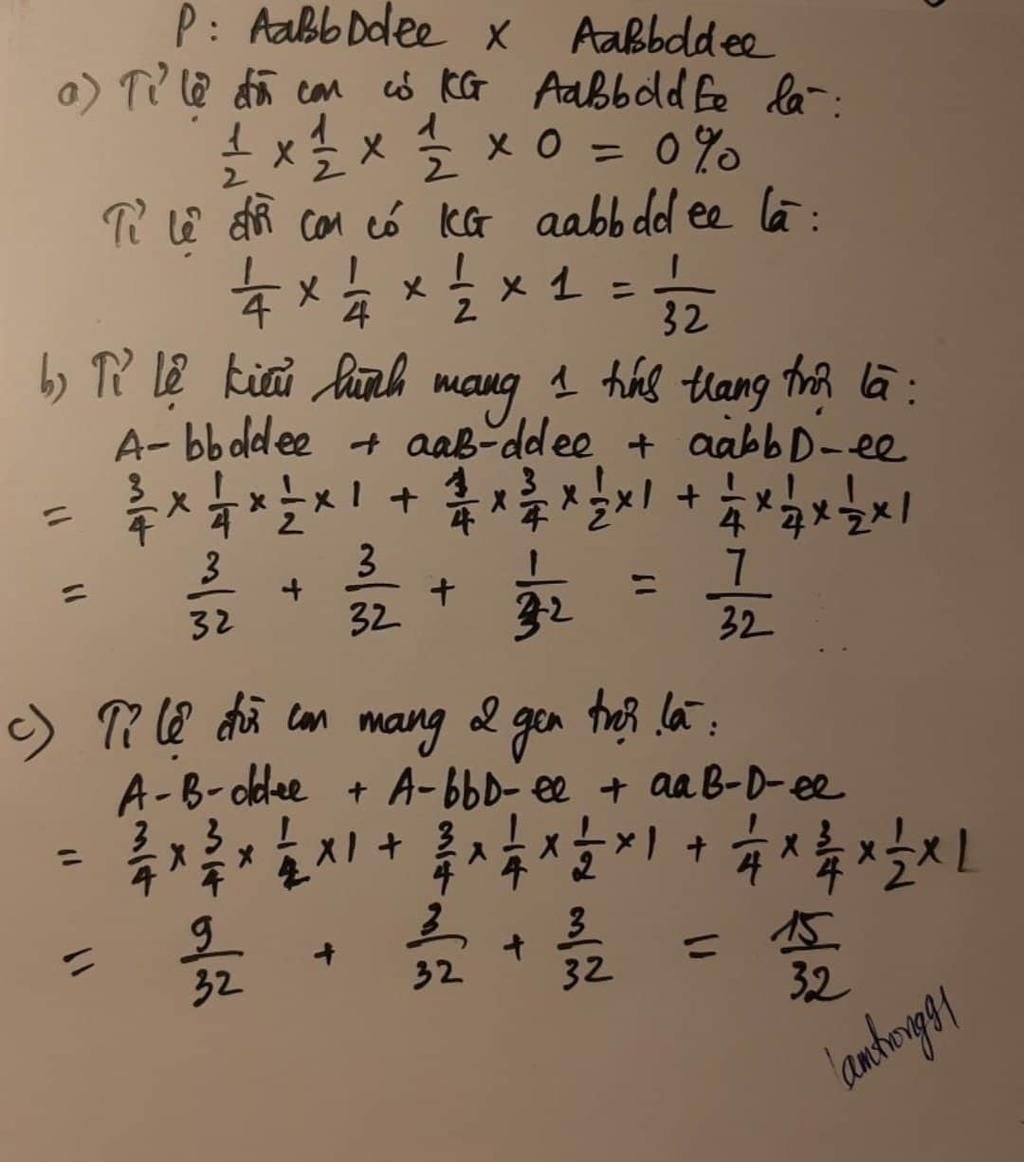 P: AaBbDdee x AaBbddee
a) Tỉ lệ đời con có KG AaBbddEe là:
1/2 x 1/2 x 1/2 x 0 = 0%
Tỉ lệ đời con có KG aabbddee là:
1/4 x 1/4 x 1/2 x 1 = 1/32
b) Tỉ lệ kiểu hình mang 1 tính trạng trội là:
A-bbddee + aaB-ddee + aabbD-ee
= 3/4 x 1/4 x 1/2 x 1 + 1/4 x 3/4 x 1/2 x 1 + 1/4 x 1/4 x 1/2 x 1
= 3/32 + 3/32 + 1/32 = 7/32
c) Tỉ lệ đời con mang 2 gen trội là:
A-B-ddee + A-bbD-ee + aaB-D-ee
= 3/4 x 3/4 x 1/2 x 1 + 3/4 x 1/4 x 1/2 x 1 + 1/4 x 3/4 x 1/2 x 1
= 9/32 + 3/32 + 3/32 = 15/32
lamtrong91